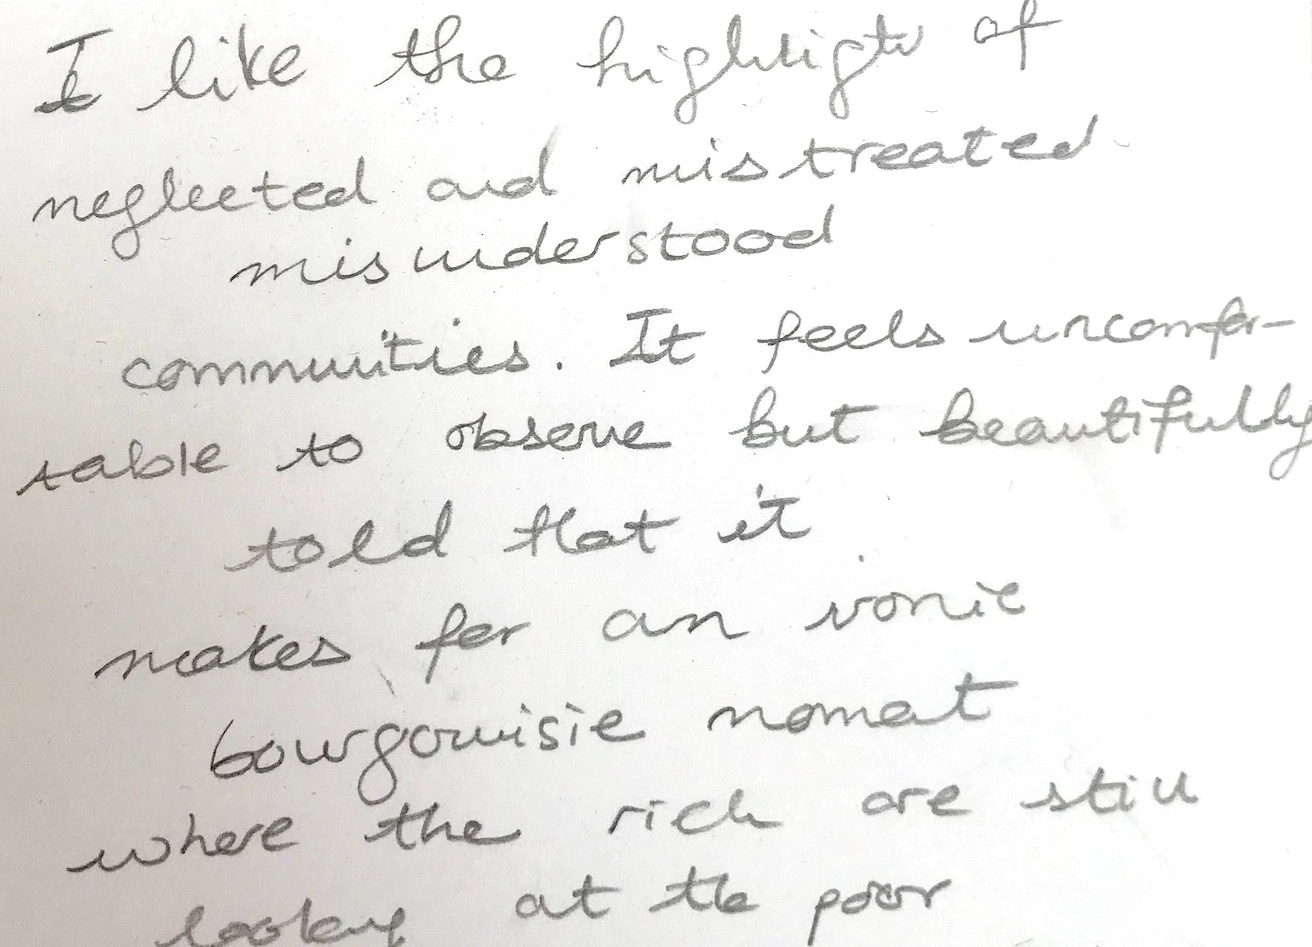 I like the highlight of
neglected and mistreated
misunderstood
communities. It feels uncomfor-
table to observe but beautifully
told that it
makes for an ironic
bourgouisie moment
where the rich are still
looking at the poor